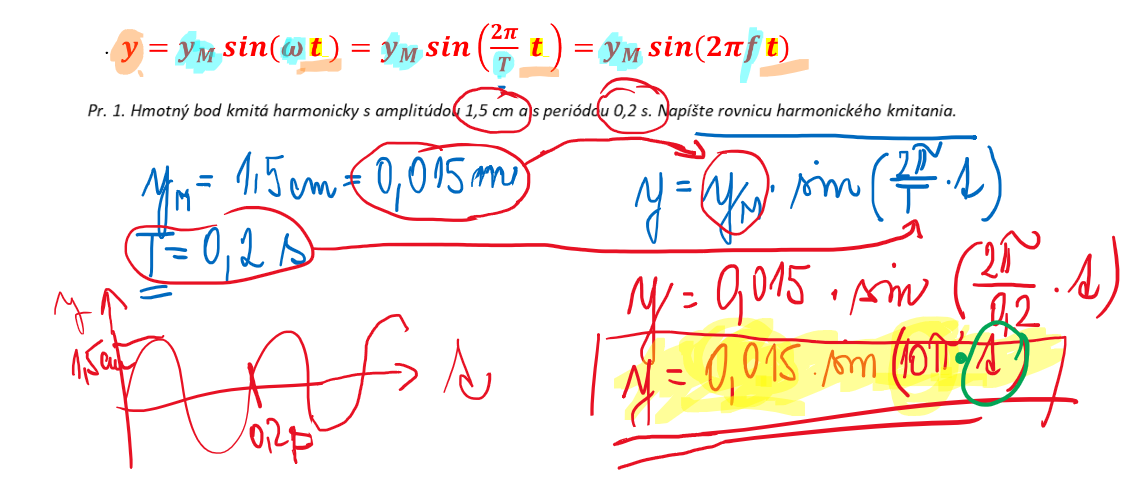 . y = y_M sin(ω t) = y_M sin(2π/T t) = y_M sin(2πf t)
Pr. 1. Hmotný bod kmitá harmonicky s amplitúdou 1,5 cm a s periódou 0,2 s. Napíšte rovnicu harmonického kmitania.
y_M = 1,5 cm = 0,015 m
y = y_M · sin(2π/T · t)
T = 0,2 s
y = 0,015 · sin(2π/0,2 · t)
y
1,5 cm
t
y = 0,015 · sin(10π · t)
0,2 s